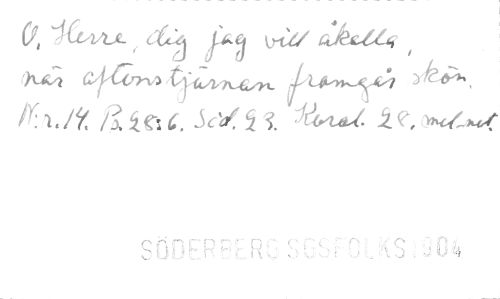 O, Herre, dig jag vill åkalla,
när aftonstjärnan framgår skön.
N:r. 14. Ps. 28:6. Sid. 23. Koral. 28. mel. not.
SÖDERBERG SGSFOLKS 1904